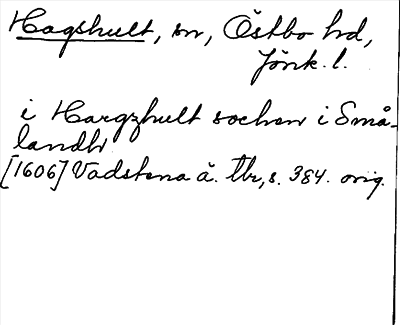 Hagshult, sn, Östbo hd,
Jönk. l.
i Hargzhult sochen i Små-
landh
[1606] Vadstena ä. tbr, s. 384. orig.